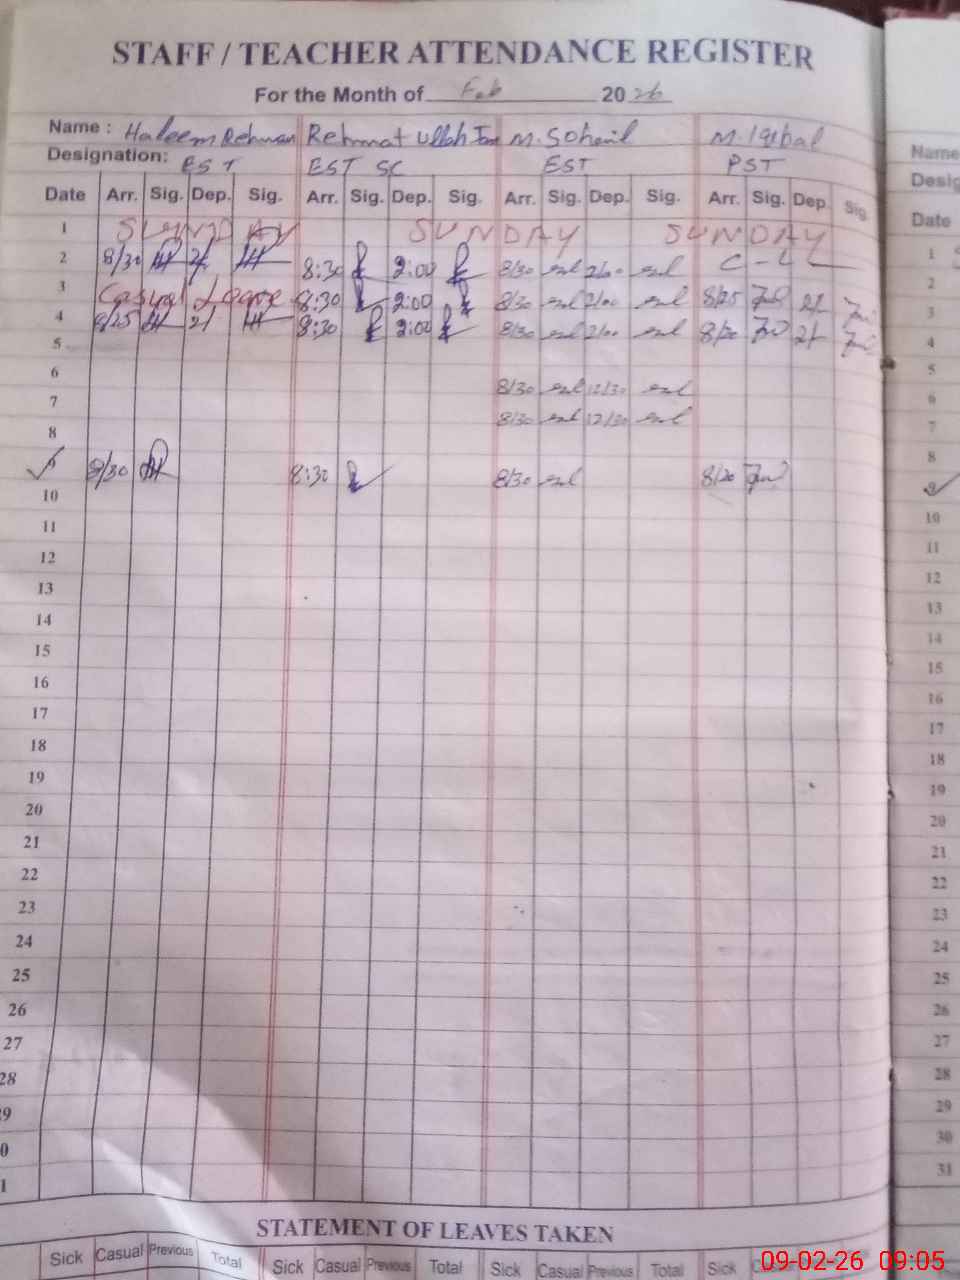 STAFF / TEACHER ATTENDANCE REGISTER
For the Month of Feb 20 26
Name : Haleem Rehman Rehmat Ullah Jan M. Soheil M. Iqbal
Designation: EST EST SC EST PST
Date Arr. Sig. Dep. Sig. Arr. Sig. Dep. Sig. Arr. Sig. Dep. Sig. Arr. Sig. Dep. Sig.
1 SUNDAY SUNDAY SUNDAY
2 8/30 2/ 8:30 2:00 8/30 2/00 C-L
3 Casual Leave 8:30 2:00 8/30 2/00 8/25 2/
4 8/25 2/ 8:30 2:00 8/30 2/00 8/20 2/
5
6 8/30 12/30
7 8/30 12/30
8
9 8/30 8:30 8/30 8/20
10
11
12
13
14
15
16
17
18
19
20
21
22
23
24
25
26
27
28
29
30
31
STATEMENT OF LEAVES TAKEN
Sick Casual Previous Total Sick Casual Previous Total Sick Casual Previous Total Sick
Name
Date
1
2
3
4
5
6
7
8
9
10
11
12
13
14
15
16
17
18
19
20
21
22
23
24
25
26
27
28
29
30
31
09-02-26 09:05